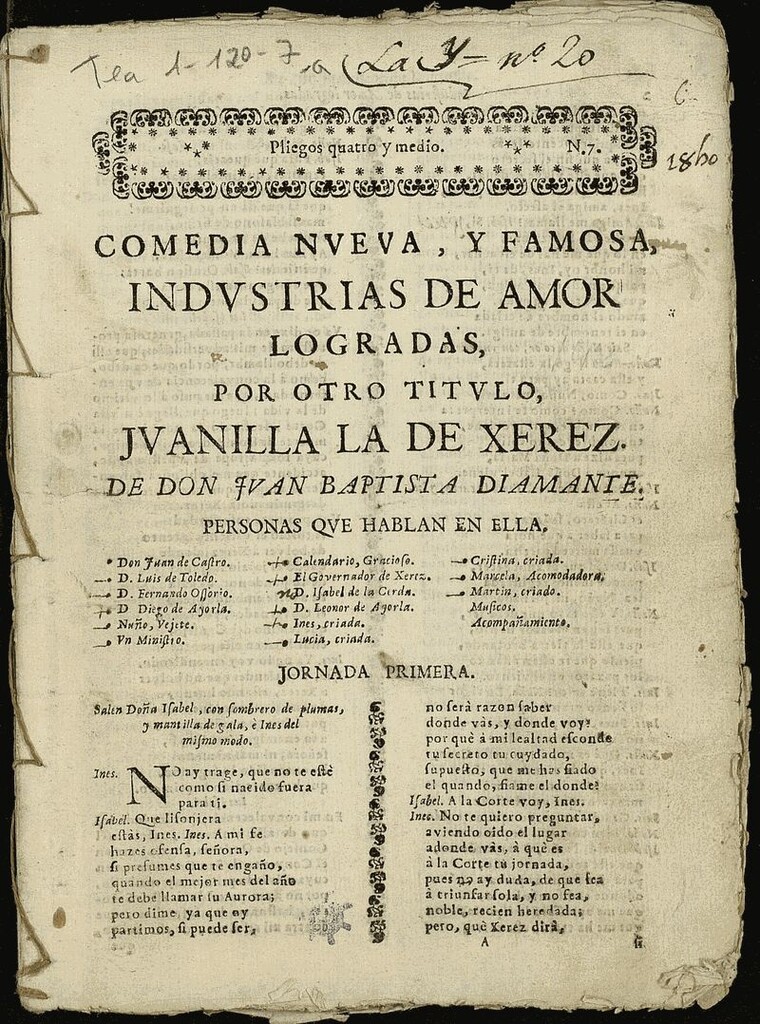 Tea 1-120-7, a La Y = nº 20
6
Pliegos quatro y medio. N.7.
18ho
COMEDIA NVEVA, Y FAMOSA,
INDVSTRIAS DE AMOR
LOGRADAS,
POR OTRO TITVLO,
JVANILLA LA DE XEREZ.
DE DON JVAN BAPTISTA DIAMANTE.
PERSONAS QVE HABLAN EN ELLA.
Don Juan de Castro.
D. Luis de Toledo.
D. Fernando Ossorio.
D Diego de Ayorla.
Nuño, Vejete.
Vn Ministro.
Calendario, Gracioso.
El Governador de Xerez.
D. Isabel de la Cerda.
D. Leonor de Ayorla.
Ines, criada.
Lucia, criada.
Cristina, criada.
Marcela, Acomodadora.
Martin, criado.
Musicos.
Acompañamiento.
JORNADA PRIMERA.
Salen Doña Isabel, con sombrero de plumas,
y mantilla de gala, è Ines del
mismo modo.
Ines. NO ay trage, que no te estè
como si nacido fuera
para ti.
Isabel. Que lisonjera
estàs, Ines. Ines. A mi fe
hazes ofensa, señora,
si presumes que te engaño,
quando el mejor mes del año
te debe llamar su Aurora;
pero dime, ya que oy
partimos, si puede ser,
no serà razon saber
donde vàs, y donde voy?
por què à mi lealtad esconde
tu secreto tu cuydado,
supuesto, que me has fiado
el quando, fiame el donde?
Isabel. A la Corte voy, Ines.
Ines. No te quiero preguntar,
aviendo oido el lugar
adonde vàs, à què es
à la Corte tu jornada,
pues no ay duda, de que sea
à triunfar sola, y no sea,
noble, recien heredada;
pero, què Xerez dirà,
A